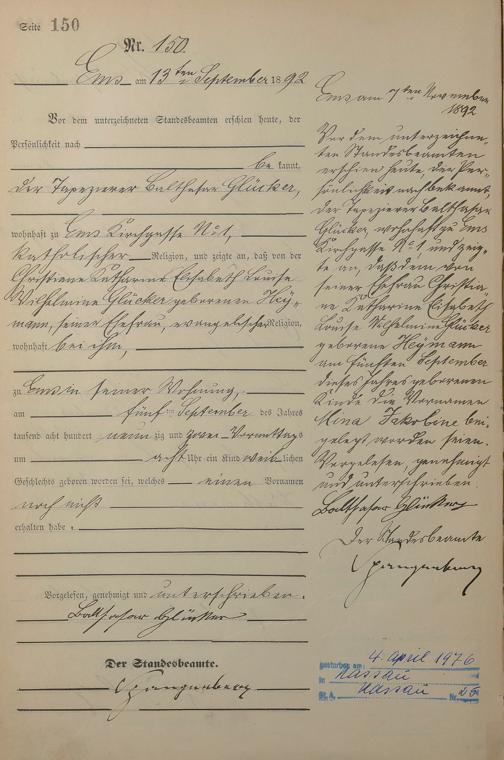 Seite 150
Nr. 150.
Ems am 13ten September 1892
Vor dem unterzeichneten Standesbeamten erschien heute, der
Persönlichkeit nach
bekannt,
der Tapezierer Balthasar Glücker,
wohnhaft zu Ems Kirchgasse No 1,
katholischer Religion, und zeigte an, daß von der
Christiane Katharine Elisabeth Louise
Wilhelmine Glücker geborenen Hey-
mann, seiner Ehefrau, evangelischer Religion,
wohnhaft bei ihm,
zu Ems in seiner Wohnung,
am fünften September des Jahres
tausend acht hundert neunzig und zwei Vormittags
um acht Uhr ein Kind weiblichen
Geschlechts geboren worden sei, welches einen Vornamen
noch nicht
erhalten habe.
Vorgelesen, genehmigt und unterschrieben.
Balthasar Glücker
Der Standesbeamte.
Spangenberg
Ems am 7ten November
1892
Vor dem unterzeichne-
ten Standesbeamten
erschien heute, der Per-
sönlichkeit nach bekannt,
der Tapezierer Balthasar
Glücker, wohnhaft zu Ems
Kirchgasse No 1 und zeig-
te an, daß dem von
seiner Ehefrau Christia-
ne Katharine Elisabeth
Louise Wilhelmine Glücker
geborene Heymann
am fünften September
dieses Jahres geborenen
Kinde die Vornamen
Mina Jakobine bei-
gelegt worden seien.
Vorgelesen, genehmigt
und unterschrieben.
Balthasar Glücker
Der Standesbeamte
Spangenberg
gestorben am 4. April 1976
in Nassau
St.A. Nassau Nr. 26